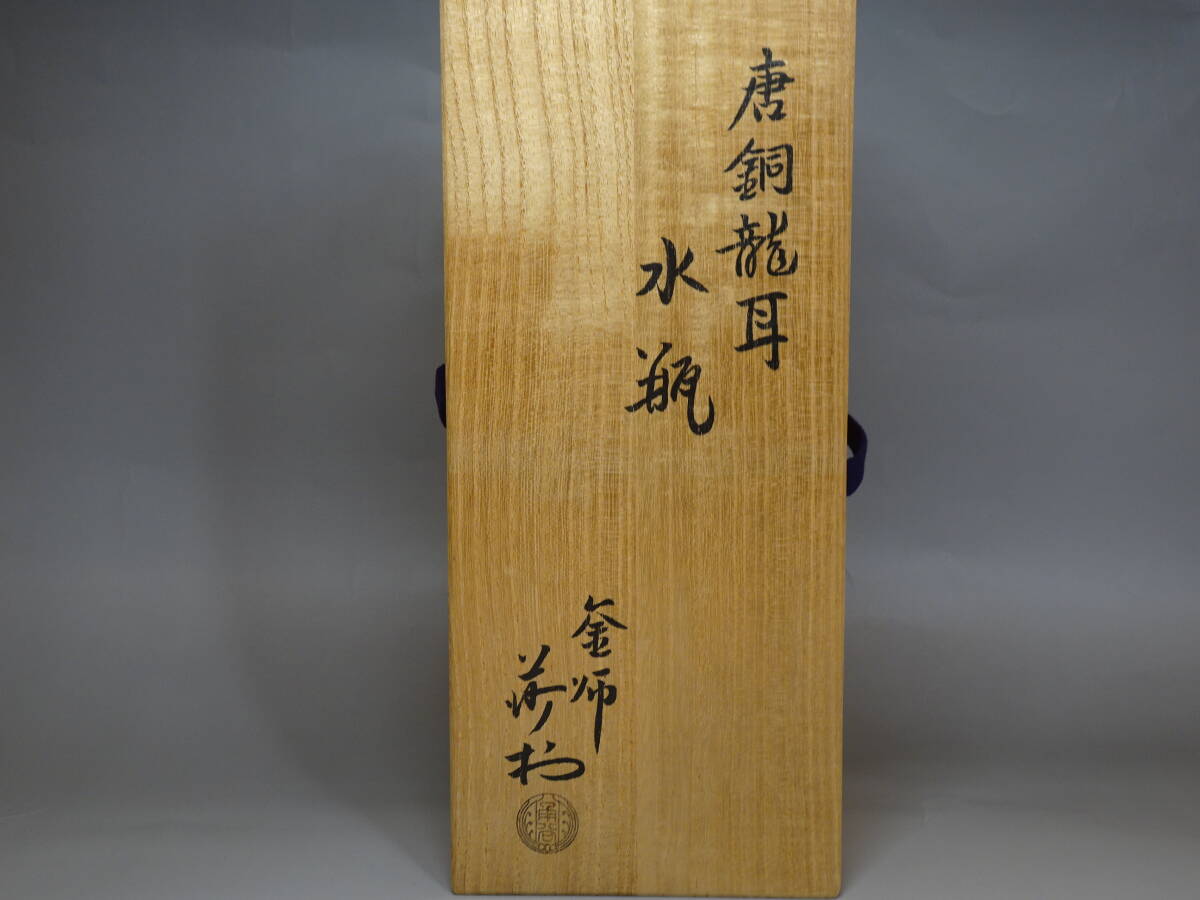 唐銅龍耳
水瓶
釜師